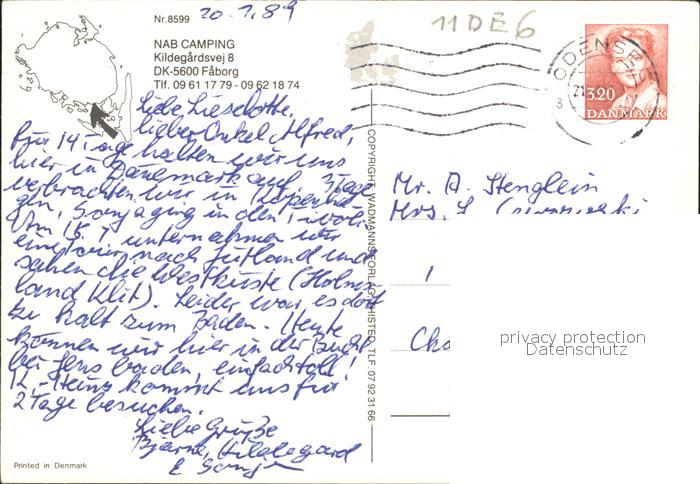 20.7.89
11 DE 6
Nr.8599
NAB CAMPING
Kildegårdsvej 8
DK-5600 Fåborg
Tlf. 09 61 17 79 - 09 62 18 74
ODENSE
3.20
DANMARK
Liebe Lieselotte,
lieber Onkel Alfred,
Für 14 Tage halten wir uns
hier in Dänemark auf. 3 Tage
verbrachten wir in Kopenha-
gen, Sonja ging in den Tivoli.
Am 18.7 unternahmen wir
eine Tour nach Jütland und
sahen die Westküste (Holms-
land Klit). Leider war es dort
zu kalt zum Baden. Heute
können wir hier in der Bucht
bei Jens baden, einfach toll!
K.-Heinz kommt uns für
2 Tage besuchen.
Liebe Grüße
Bjarne, Hildegard
Mr. A. Stenglein
Mrs. L.
COPYRIGHT: WADMANNS FORLAG, THISTED, TLF. 07 92 31 66
privacy protection
Datenschutz
Printed in Denmark